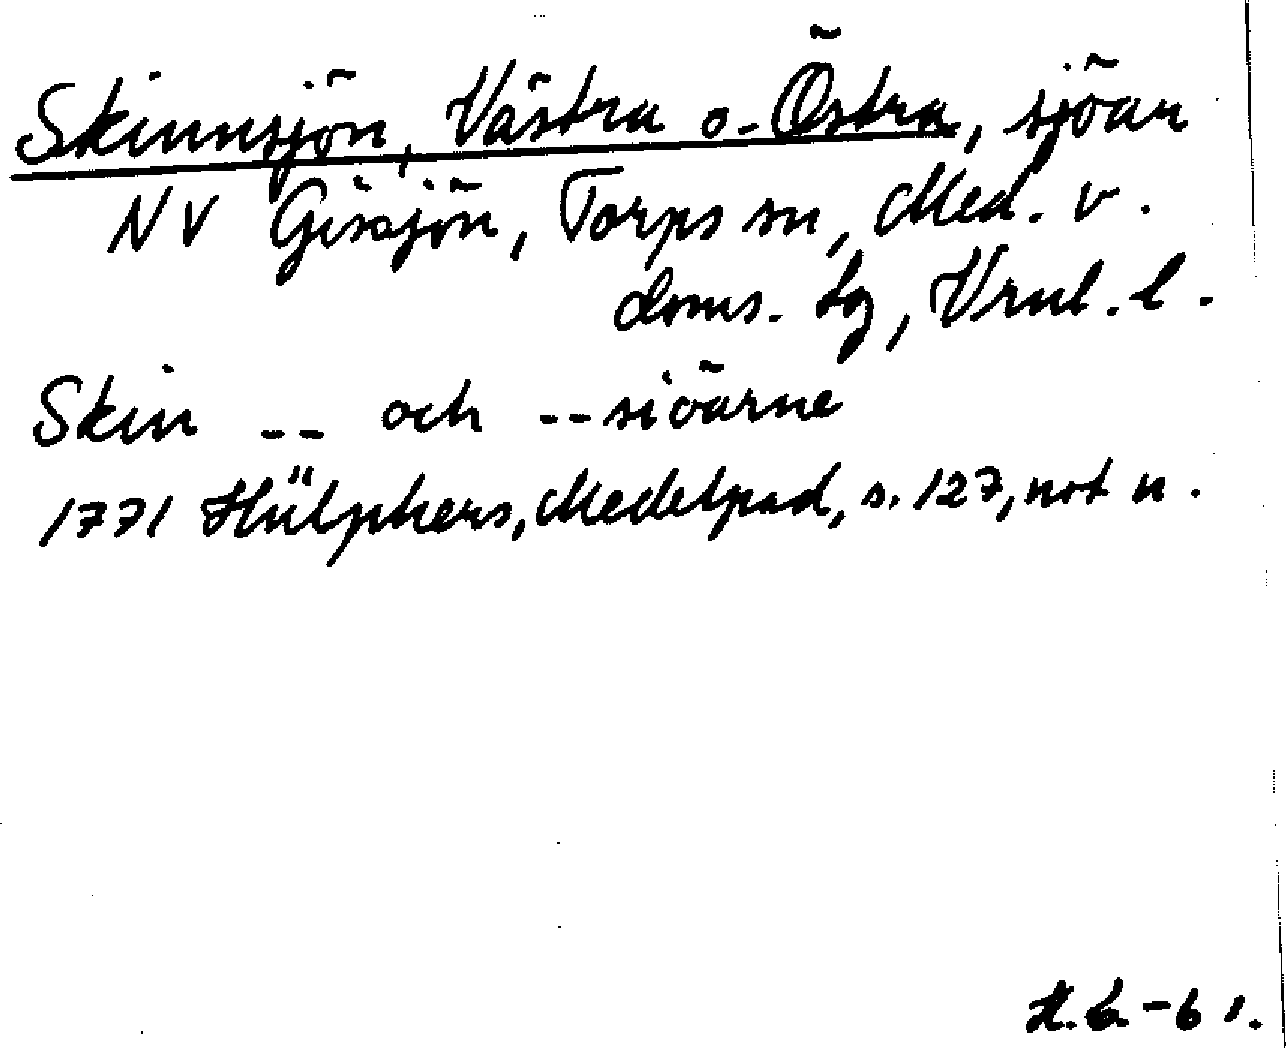 Skinnsjön, Västra o. Östra, sjöar
NV Gissjön, Torps sn, Med. v.
doms. tg, Vrnl. l.
Skin -- och -- siöarne
1771 Hülphers, Medelpad, s. 127, not n.
-61.